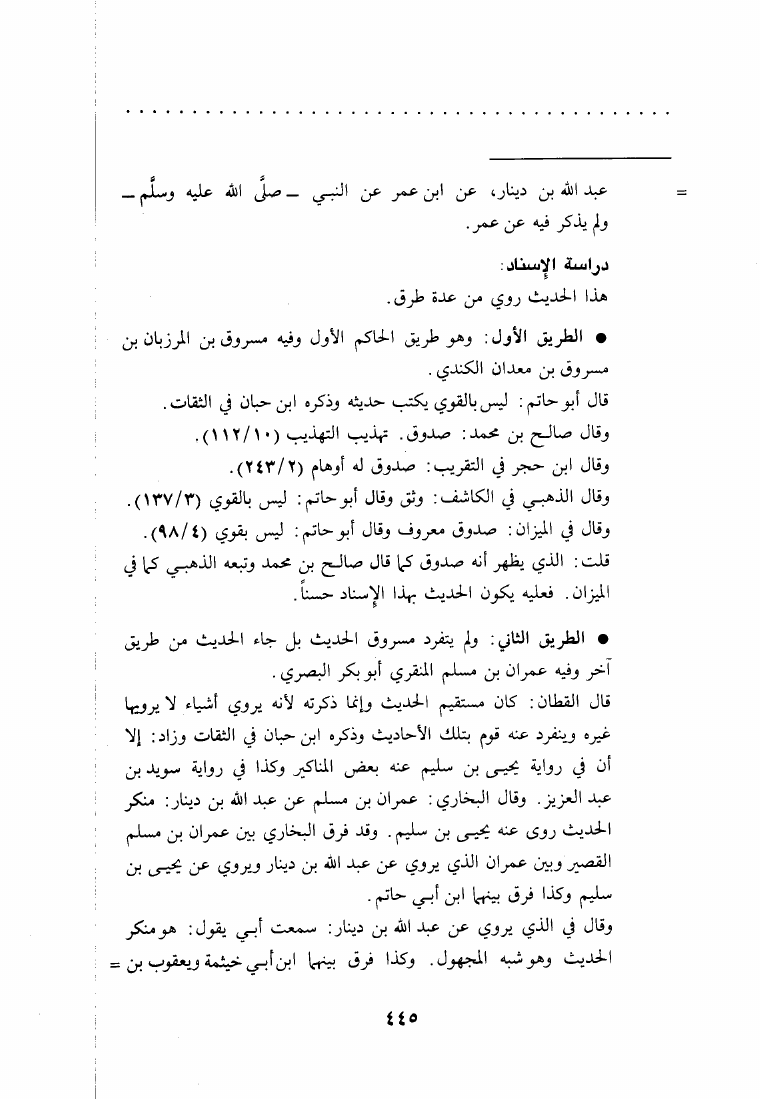 = عبد الله بن دينار، عن ابن عمر عن النبي ــ صلَّى الله عليه وسلَّم ــ
ولم يذكر فيه عن عمر.
دراسة الإسناد:
هذا الحديث روي من عدة طرق.
● الطريق الأول: وهو طريق الحاكم الأول وفيه مسروق بن المرزبان بن
مسروق بن معدان الكندي.
قال أبو حاتم: ليس بالقوي يكتب حديثه وذكره ابن حبان في الثقات.
وقال صالح بن محمد: صدوق. تهذيب التهذيب (١١٢/١٠).
وقال ابن حجر في التقريب: صدوق له أوهام (٢٤٣/٢).
وقال الذهبي في الكاشف: وثق وقال أبو حاتم: ليس بالقوي (١٣٧/٣).
وقال في الميزان: صدوق معروف وقال أبو حاتم: ليس بقوي (٩٨/٤).
قلت: الذي يظهر أنه صدوق كما قال صالح بن محمد وتبعه الذهبي كما في
الميزان. فعليه يكون الحديث بهذا الإسناد حسناً.
● الطريق الثاني: ولم يتفرد مسروق الحديث بل جاء الحديث من طريق
آخر وفيه عمران بن مسلم المنقري أبو بكر البصري.
قال القطان: كان مستقيم الحديث وإنما ذكرته لأنه يروي أشياء لا يرويها
غيره وينفرد عنه قوم بتلك الأحاديث وذكره ابن حبان في الثقات وزاد: إلا
أن في رواية يحيى بن سليم عنه بعض المناكير وكذا في رواية سويد بن
عبد العزيز. وقال البخاري: عمران بن مسلم عن عبد الله بن دينار: منكر
الحديث روى عنه يحيى بن سليم. وقد فرق البخاري بين عمران بن مسلم
القصير وبين عمران الذي يروي عن عبد الله بن دينار ويروي عن يحيى بن
سليم وكذا فرق بينهما ابن أبي حاتم.
وقال في الذي يروي عن عبد الله بن دينار: سمعت أبي يقول: هو منكر
الحديث وهو شبه المجهول. وكذا فرق بينهما ابن أبي خيثمة ويعقوب بن =
٤٤٥